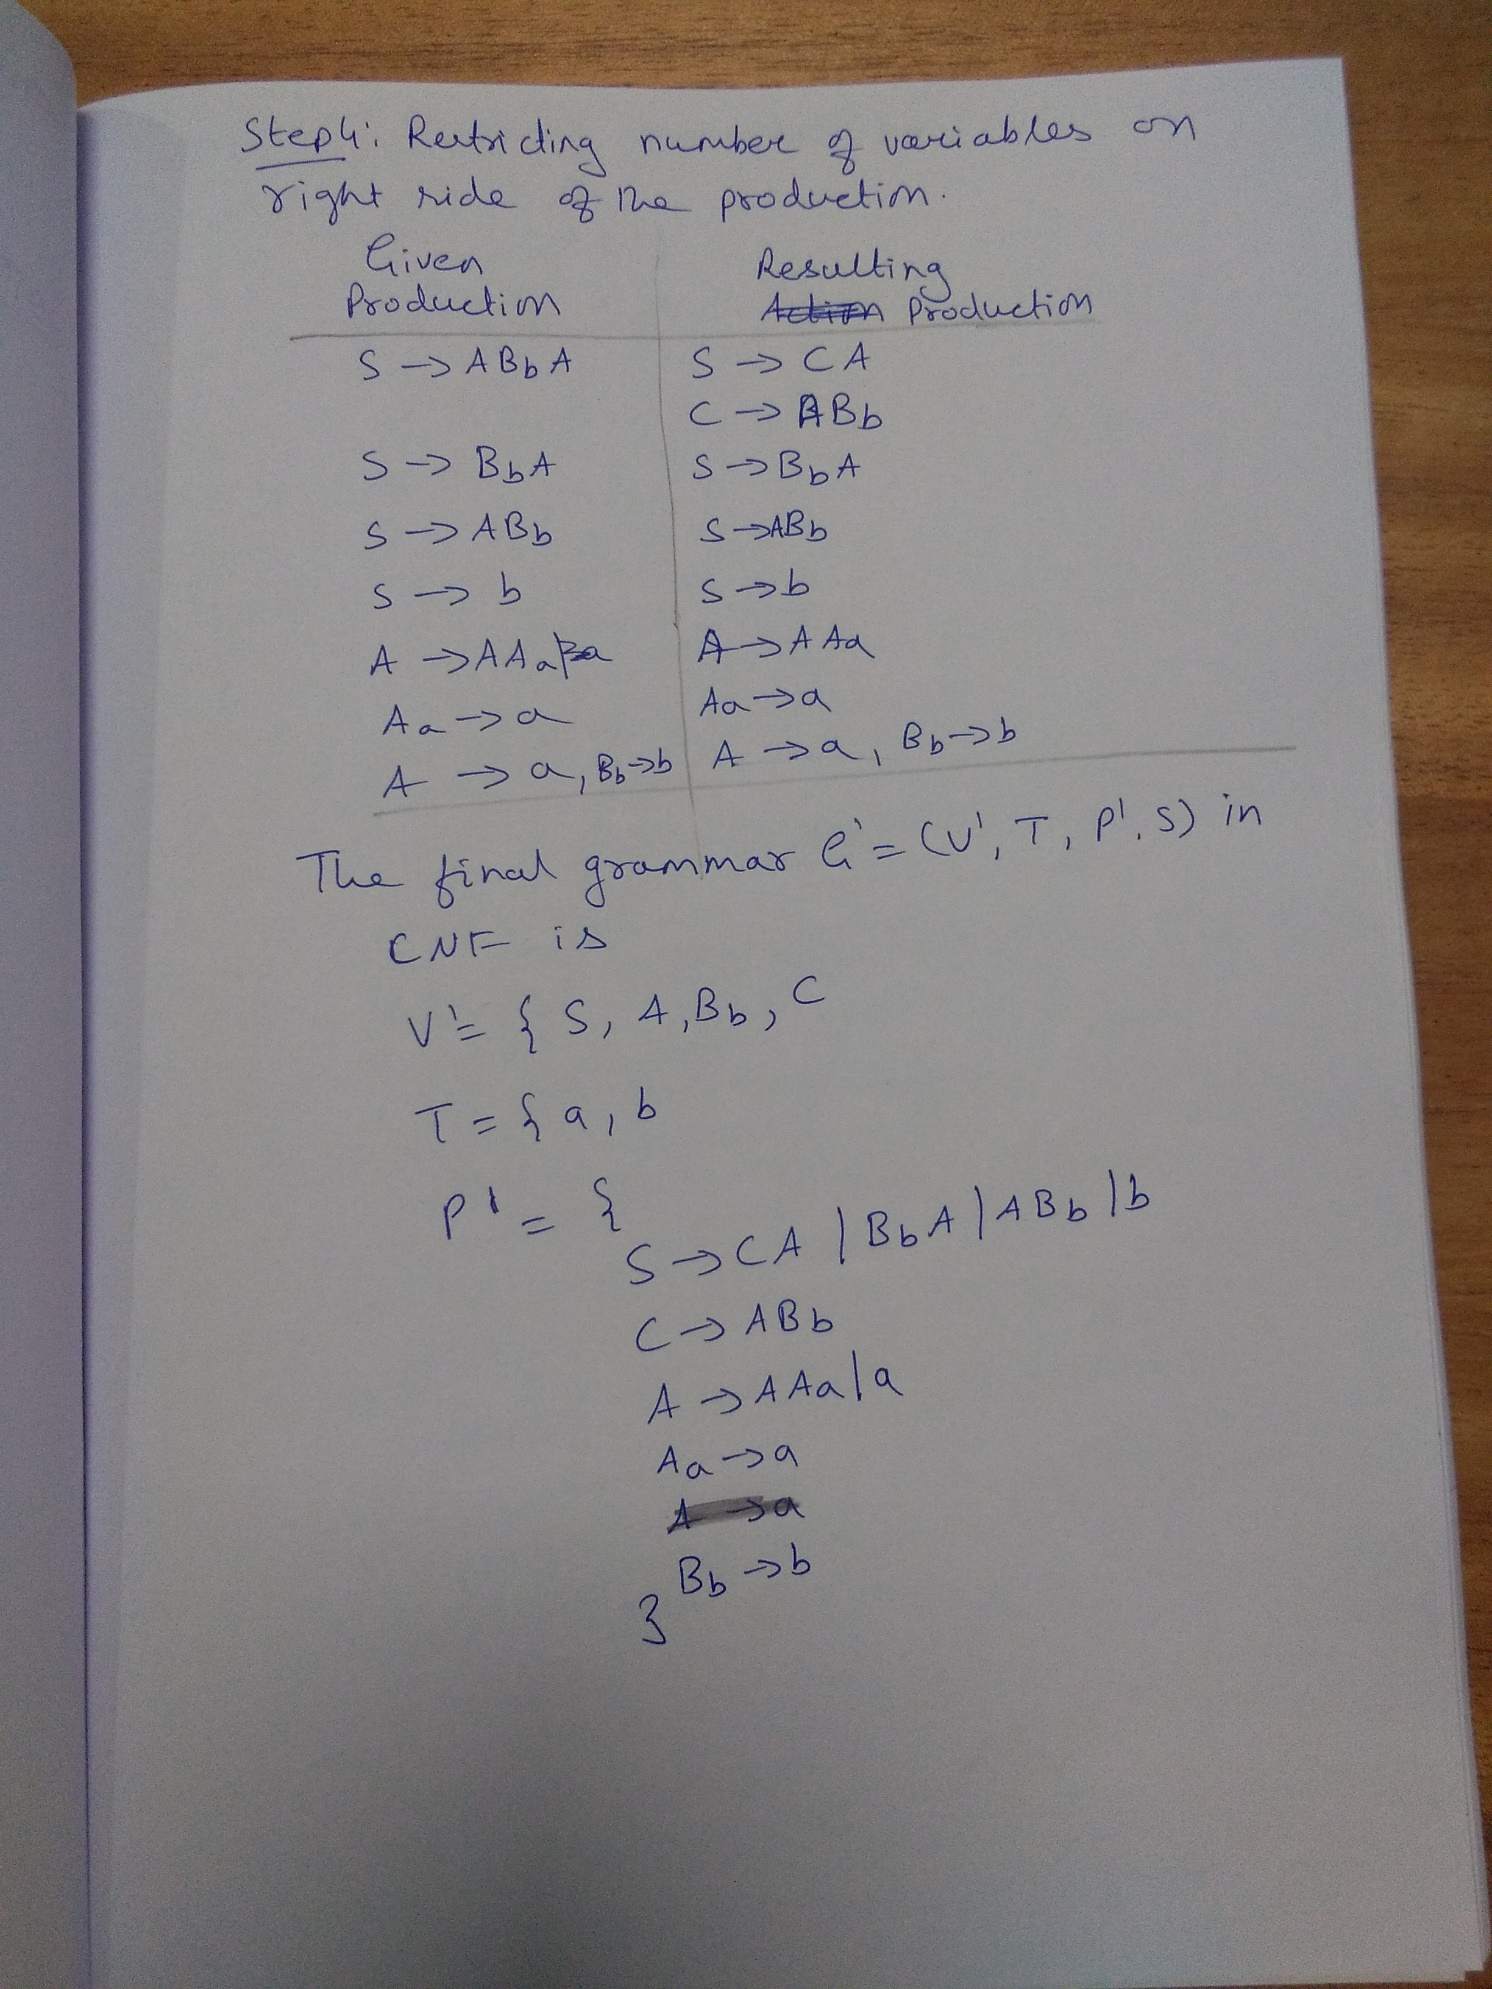 Step 4: Restricting number of variables on
right side of the production.
Given Resulting
Production Action Production
S → ABbA S → CA
C → ABb
S → BbA S → BbA
S → ABb S → ABb
S → b S → b
A → AAa A → AAa
Aa → a Aa → a
A → a, Bb → b A → a, Bb → b
The final grammar G' = (V', T, P', S) in
CNF is
V' = { S, A, Bb, C
T = { a, b
P' = {
S → CA | BbA | ABb | b
C → ABb
A → AAa | a
Aa → a
A → a
Bb → b
}